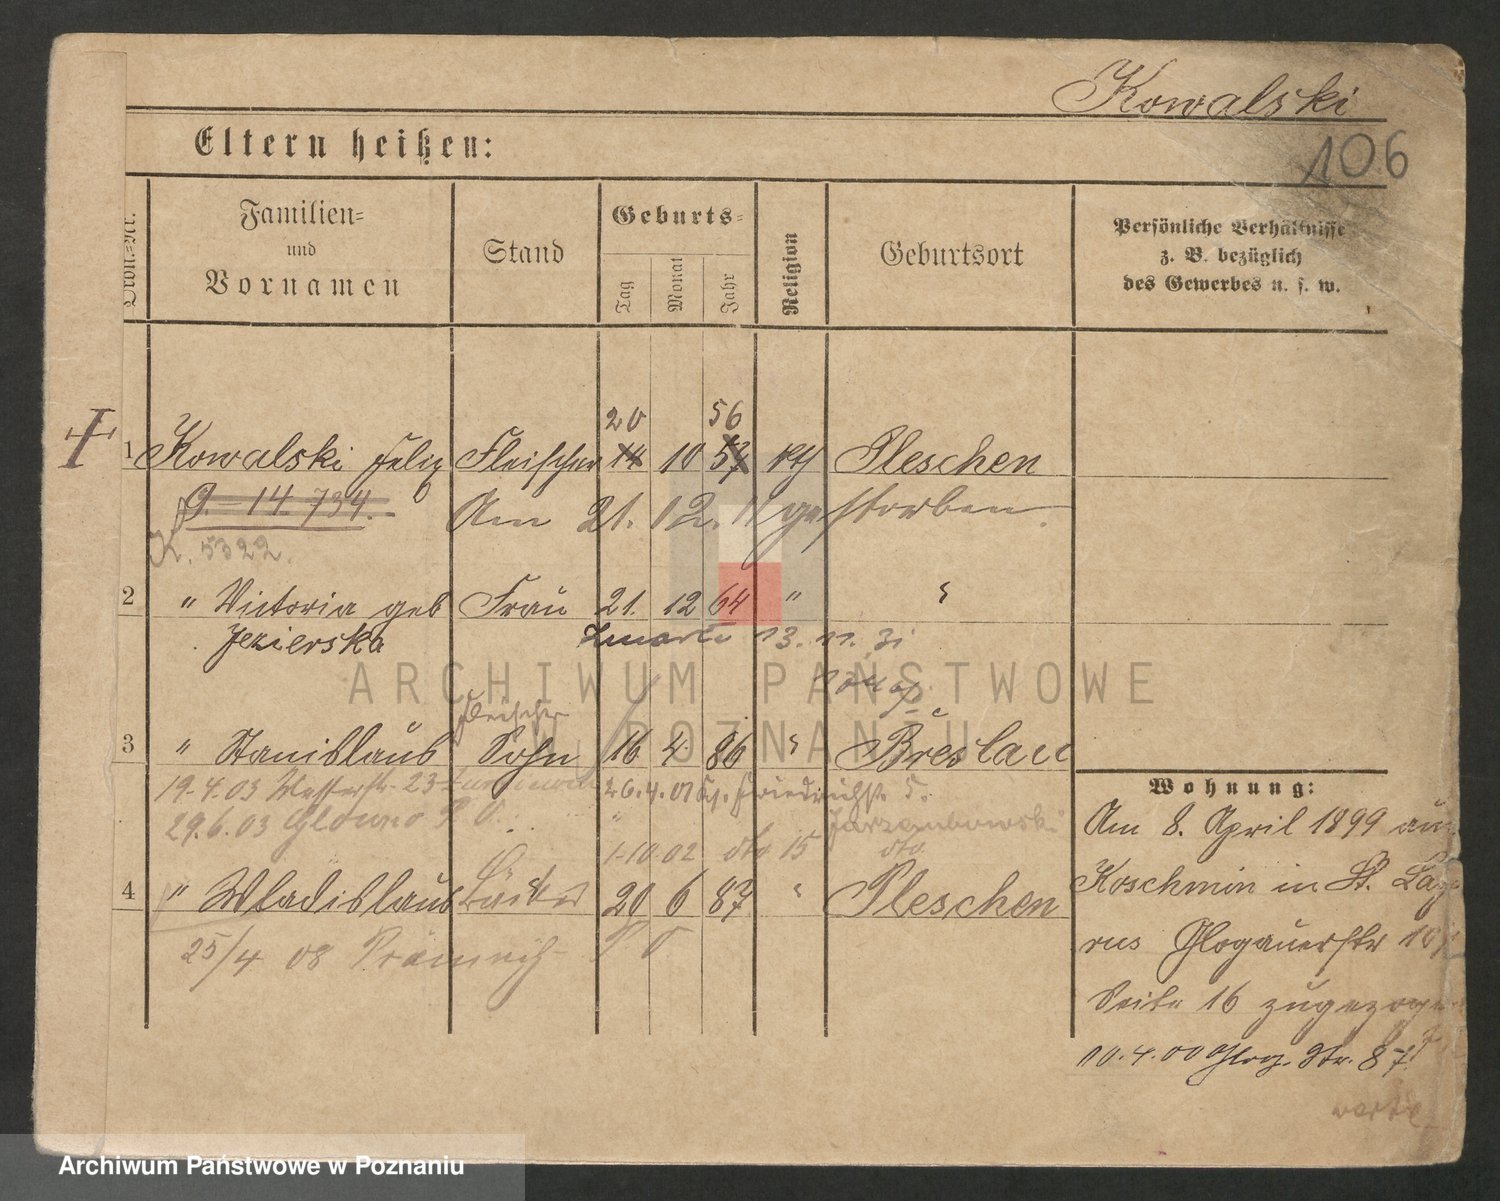 Kowalski
106
Eltern heißen:
Ordn.-Nr.
Familien-
und
Vornamen
Stand
Geburts-
Tag
Monat
Jahr
Religion
Geburtsort
Persönliche Verhältnisse
z. B. bezüglich
des Gewerbes u. s. w.
20 56
1 Kowalski Felix Fleischer 14 10 57 kth Pleschen
G. 14 734. Am 21. 12. 11 gestorben.
K. 5322.
2 " Victoria geb Frau 21. 12 64 "
Jezierska zmarła 13. 11. 31
ARCHIWUM PAŃSTWOWE
Fleischer
W POZNANIU
3 " Stanislaus Sohn 16 4. 86 Breslau
19.4.03 23 26.4.01
29.6.03 Glowno P. O. Jarzembowski
1-10 02 dto 15 dto
4 " Wladislaus Bäcker 20 6 87 Pleschen
25/4 08 P. O.
Wohnung:
Am 8. April 1899 aus
Koschmin in St. Laza
rus Glogauerstr
Seite 16 zugezogen
10.4.00 Glog. Str. 87
Archiwum Państwowe w Poznaniu